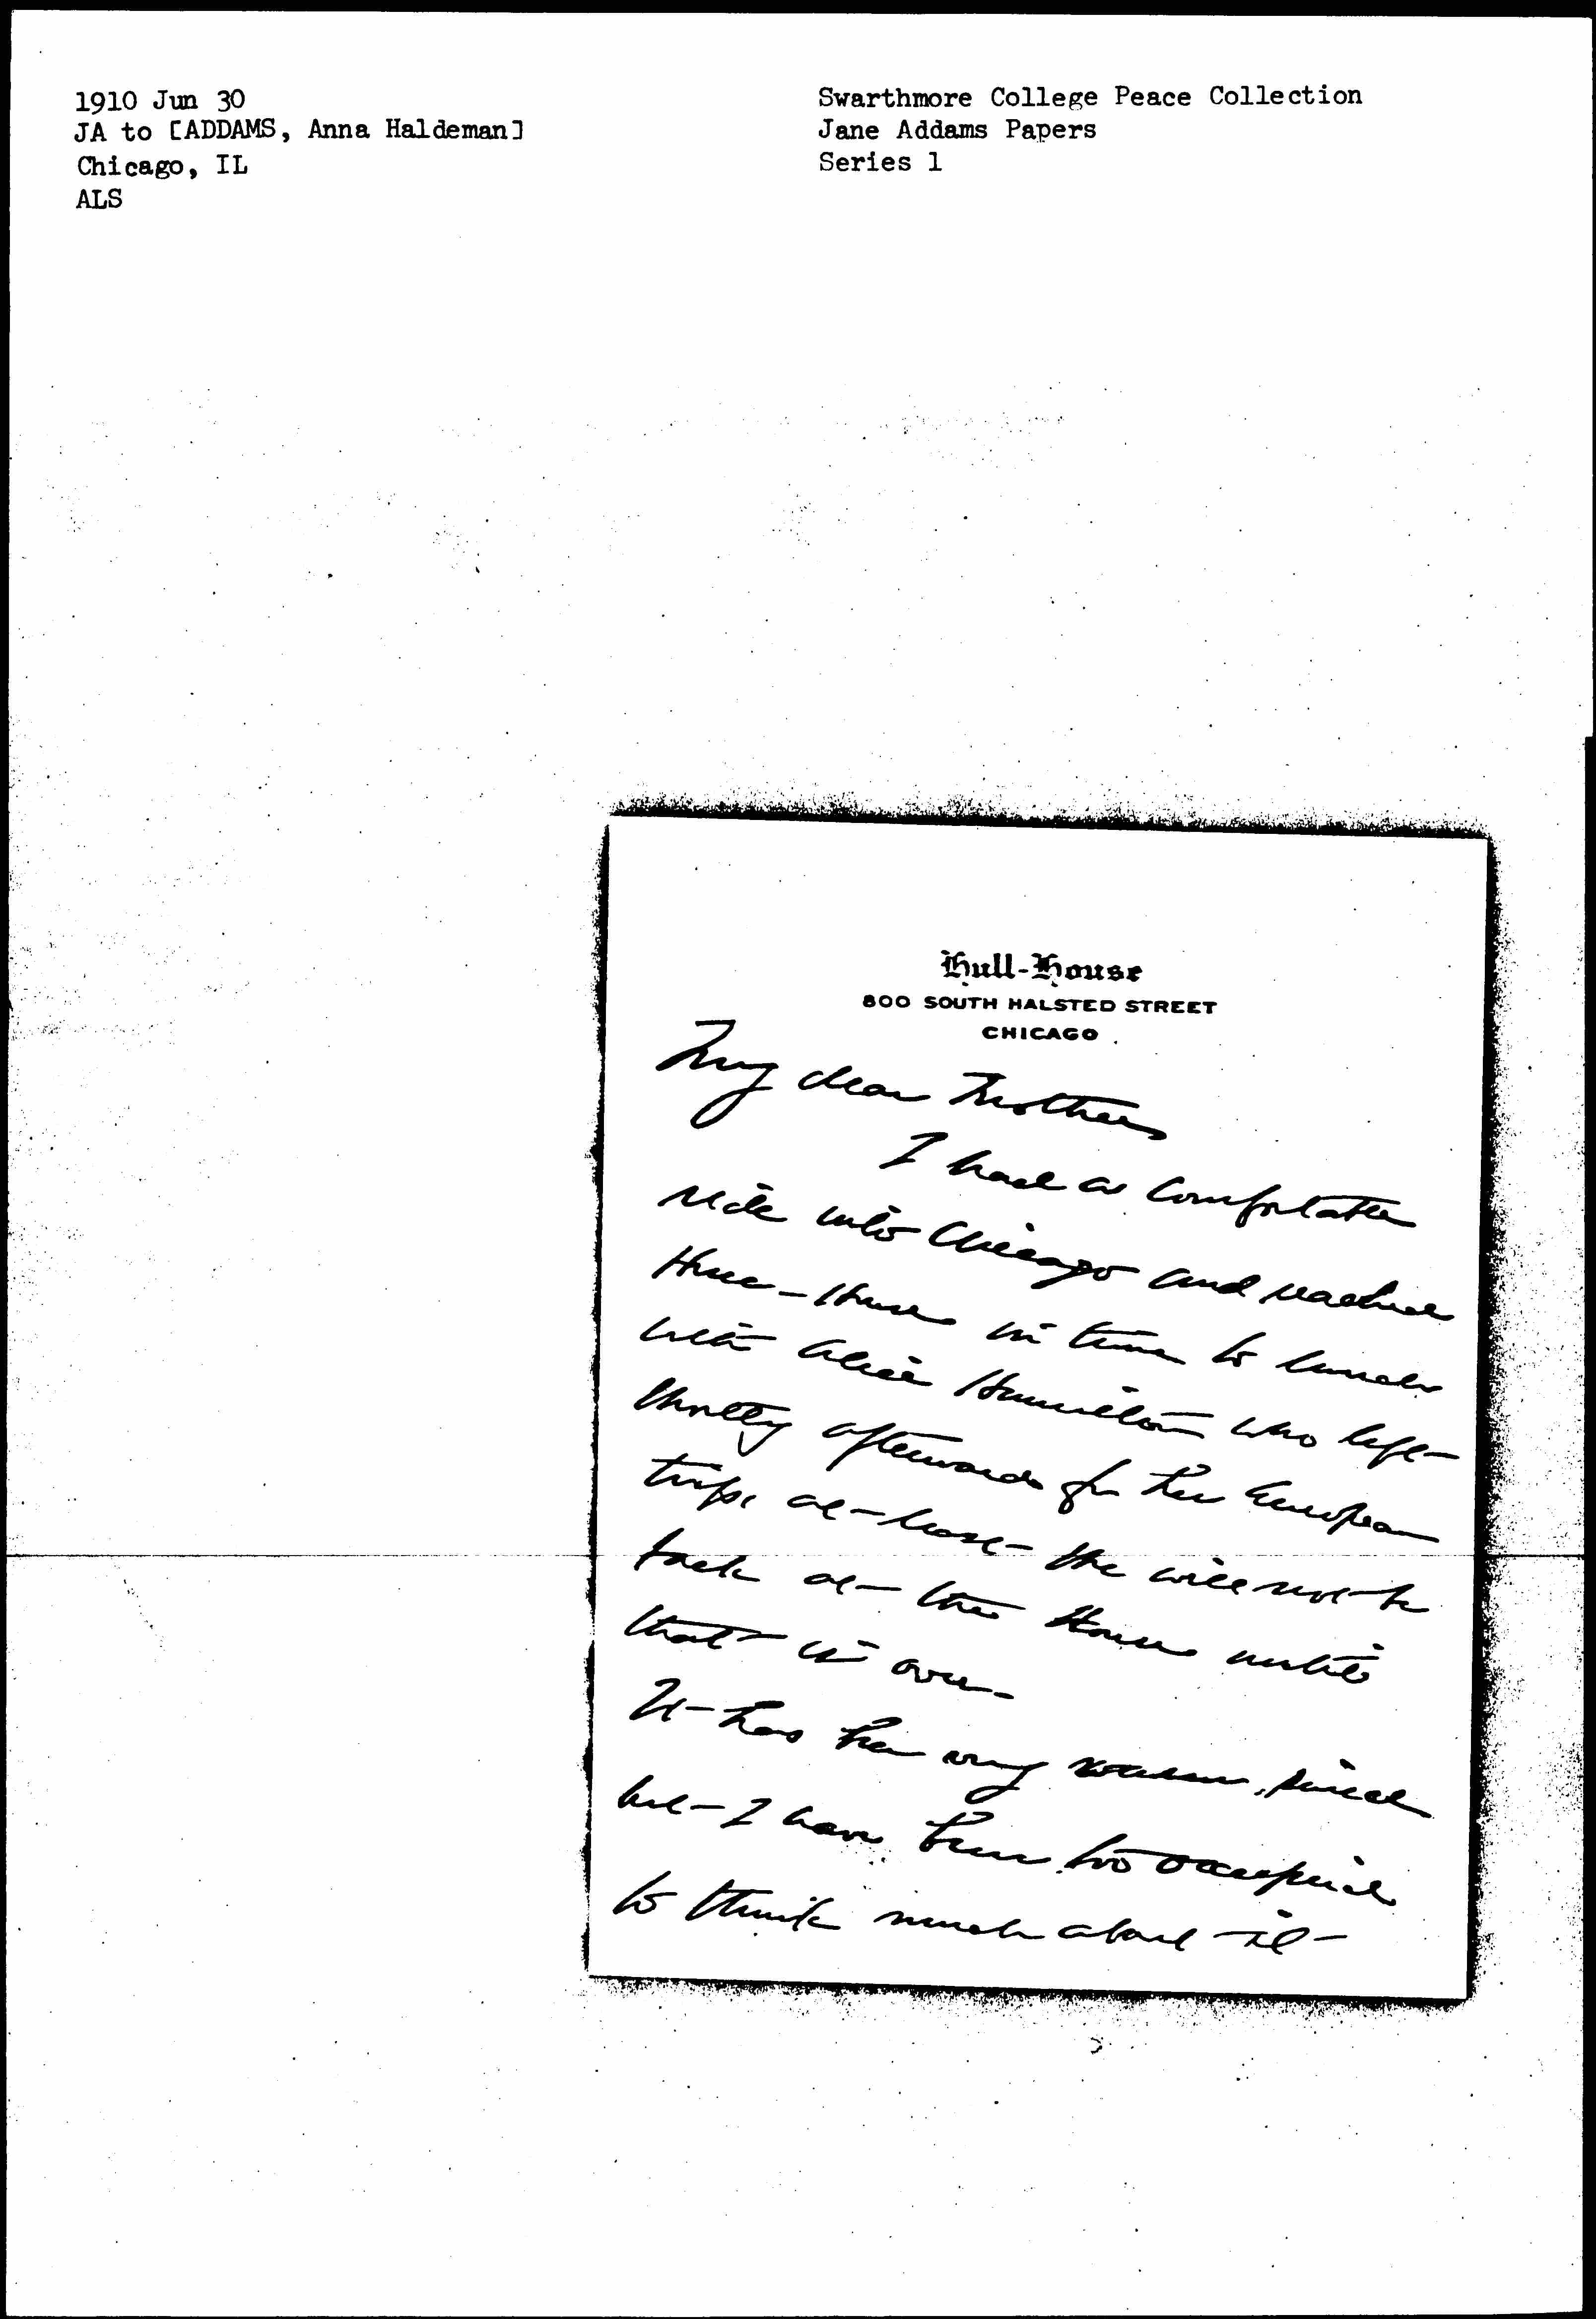 1910 Jun 30
JA to [ADDAMS, Anna Haldeman]
Chicago, IL
ALS
Swarthmore College Peace Collection
Jane Addams Papers
Series 1
Hull-House
800 SOUTH HALSTED STREET
CHICAGO
My dear Mother
I had a comfortable
ride into Chicago and reached
Hull-House in time to lunch
with Alice Hamilton who left
shortly afterwards for her European
trip, at least she will not be
back at the House until
that is over.
It has been very warm,
but I have been too occupied
to think much about it